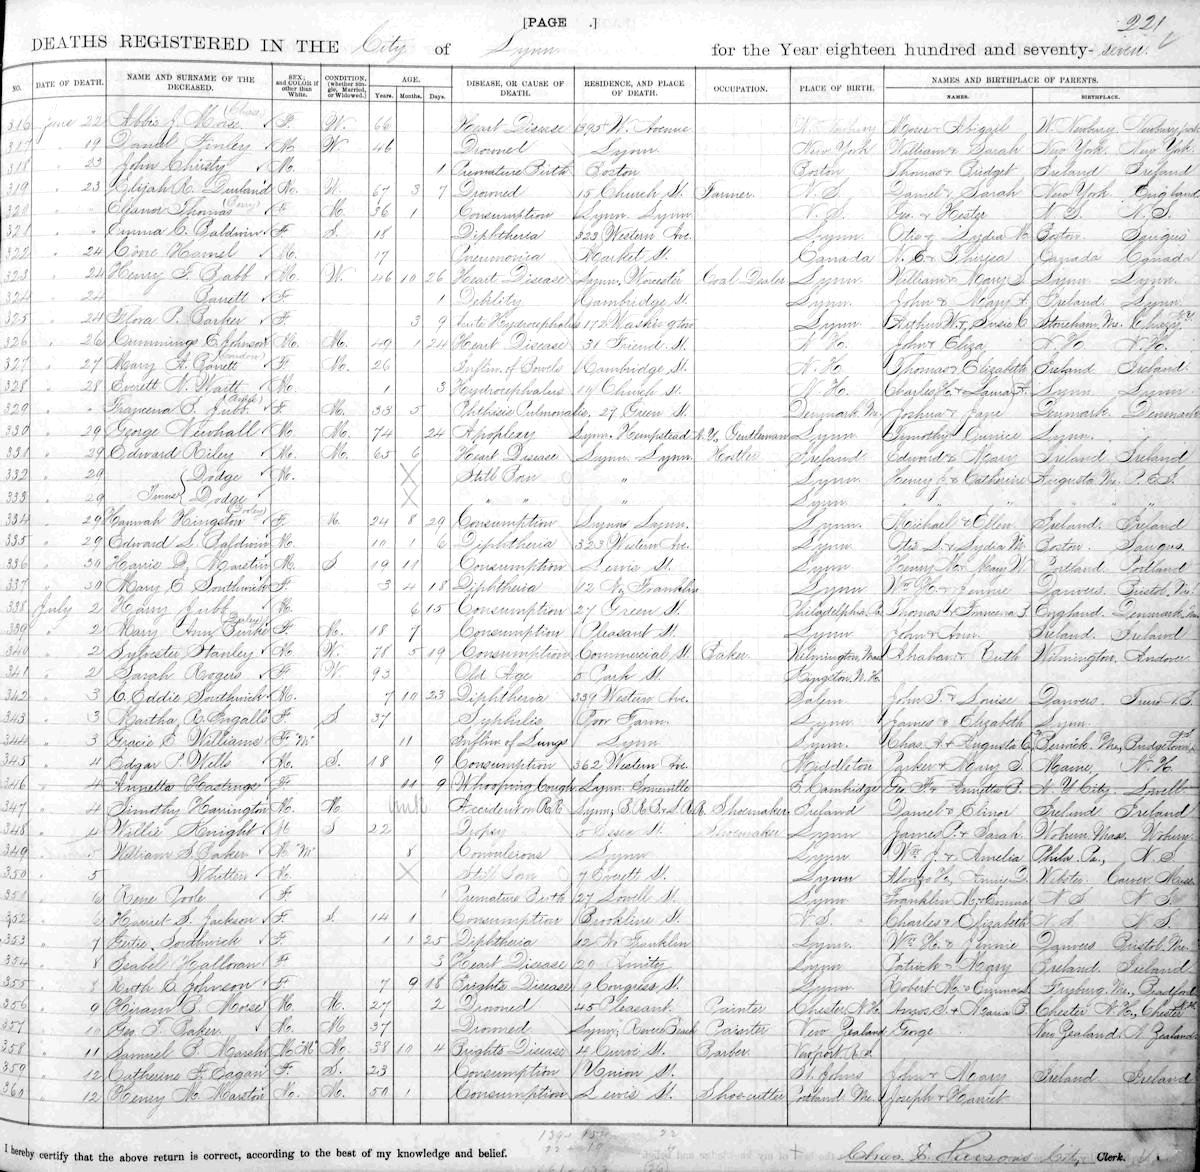 [PAGE .]
221
DEATHS REGISTERED IN THE City of Lynn for the Year eighteen hundred and seventy-seven.
NO. DATE OF DEATH. NAME AND SURNAME OF THE DECEASED. SEX; and COLOR if other than White. CONDITION, (whether Single, Married, or Widowed.) AGE. Years. Months. Days. DISEASE, OR CAUSE OF DEATH. RESIDENCE, AND PLACE OF DEATH. OCCUPATION. PLACE OF BIRTH. NAMES AND BIRTHPLACE OF PARENTS. NAMES. BIRTHPLACE.
316 June 22 Abbie J. Morse F. W. 66 Heart Disease W. Avenue W. Newbury Moses & Abigail W. Newbury
317 19 Daniel Finley M. W. 46 Drowned Lynn New York William & Sarah New York New York
318 23 John Christy M. 1 Premature Birth Boston Boston Thomas & Bridget Ireland Ireland
319 23 Elijah M. 67 3 7 Drowned 15 Church St. Farmer N. S. Daniel & Sarah New York England
320 Eleanor Thomas F. M. 36 1 Consumption Lynn Lynn N. S. Geo. & Hester N. S. N. S.
321 Emma C. Baldwin F. S. 18 Diphtheria 323 Western Ave. Lynn Otis & Lydia M. Boston Saugus
322 24 Hamel M. 17 Pneumonia Market St. Canada Canada Canada
323 24 Henry F. Babb M. W. 46 10 26 Heart Disease Lynn, Worcester Coal Dealer Lynn William & Mary S. Lynn Lynn
324 24 Barrett F. 1 Debility Cambridge St. Lynn. John & Mary A. Ireland Lynn.
325 24 Flora P. Barker F. 3 9 Acute Hydrocephalus 172 Washington Lynn Arthur W. & Susie C. Stoneham, Me.
326 26 Cummings E. Johnson M. M. 49 1 24 Heart Disease 31 Friend St. N. H. John & Eliza N. H. N. H.
327 27 Mary A. Barrett F. M. 26 Inflm. of Bowels Cambridge St. N. H. Thomas & Elizabeth Ireland Ireland.
328 28 Everett N. Waitt M. 1 3 Hydrocephalus 19 Church St. N. H. Charles H. & Laura F. Lynn Lynn
329 Francena S. Jubb F. M. 33 5 Phthisis Pulmonalis, 27 Green St. Denmark, Me. Joshua & Jane Denmark Denmark
330 29 George Newhall M. M. 74 24 Apoplexy Lynn. Hempstead N.Y., Gentleman Lynn Timothy & Eunice Lynn.
331 29 Edward Riley M. M. 65 6 Heart Disease Lynn. Lynn. Hostler Ireland Edward & Mary Ireland Ireland
332 29 Dodge M. Still Born " Lynn. Henry J. & Catherine Augusta Me. P.E.I.
333 29 Twins Dodge " " " Lynn. " "
334 29 Hannah Kingston F. M. 24 8 29 Consumption Lynn Lynn. Lynn. Michael & Ellen Ireland. Ireland
335 29 Edward L. Baldwin M. 10 1 6 Diphtheria 323 Western Ave. Lynn Otis S. & Lydia M. Boston Saugus.
336 30 D. Marston M. S 19 11 Consumption Lewis St. Lynn Henry M. & Mary W. Portland Portland
337 30 Mary E. Southwick F. 3 4 18 Diphtheria 12 N. Franklin Lynn Wm H. & Jennie Danvers Bristol, Me.
338 July 2 Harry Jubb M. 6 15 Consumption 27 Green St. Philadelphia Pa. Thomas & Francena S. England Denmark, Me.
339 2 Mary Ann F. M. 18 7 Consumption Pleasant St. Lynn John & Ann. Ireland. Ireland
340 2 Sylvester Stanley M. W. 78 5 19 Consumption Commercial St. Baker Wilmington, Mass Abraham & Ruth Wilmington, Andover
341 2 Sarah Rogers F. W. 93 Old Age 5 Park St. Kingston N. H.
342 3 C. Eddie Southwick M. 7 10 23 Diphtheria 339 Western Ave. Salem John T. & Louise Danvers
343 3 Martha A. Ingalls F. S 37 Syphilis Poor Farm. Lynn. James & Elizabeth Lynn.
344 3 Gracie E. Williams F "M" 11 Inflm of Lungs Lynn. Lynn. Chas. A. & Augusta C. Berwick, Me, Bridgetown
345 4 Edgar P. Wells M. S. 18 9 Consumption 362 Western Ave. Middleton Parker & Mary S. Maine, N. H.
346 4 Annetta Hastings F. 11 9 Whooping Cough Lynn. Somerville E. Cambridge Geo. F. & Annetta P. N. Y. City Lowell
347 4 Timothy Harrington M. M. Unk Accident on R.R. Lynn, Shoemaker Ireland Daniel & Elinor Ireland Ireland
348 4 Willie Knight M S 22 Dropsy 5 Essex St. Shoemaker Lynn James P. & Sarah Woburn Mass. Woburn
349 5 William S. Barker M. "M" 8 Convulsions Lynn Lynn Wm J. & Amelia Phila. Pa., N. S.
350 5 Whitten M. Still Born 7 Everett St. Lynn Alonzo H., Annie D. Webster Carver Mass
351 6 Rene Poole F. 1 Premature Birth 27 Lowell St. Lynn Franklin M. & Emma N S N S.
352 6 Harriet S. Jackson F. S. 14 1 Consumption Brookline St. N. S Charles & Elizabeth N. S. N. S.
353 7 Gertie Southwick F. 1 1 25 Diphtheria 12 N Franklin Lynn. Wm H. & Jennie Danvers Bristol, Me.
354 8 Isabel Halloran F 3 Heart Disease 20 Amity Lynn Patrick & Mary Ireland. Ireland
355 8 Ruth E. Johnson F 7 9 18 Brights Disease 9 Congress St. Lynn Robert M. & Fryburg, Me., Bradford
356 9 Hiram B. Morse M. M. 27 2 Drowned 45 Pleasant Painter Chester, N. H. Amos S. & Maria B. Chester N. H., Chester N.H.
357 10 Geo. T. Baker M. M 37 Drowned Lynn, Revere Beach Carpenter New Zealand George New Zealand. N. Zealand.
358 11 Samuel B. Marsh M "M" M. 38 10 4 Brights Disease 4 Curve St. Barber Newport R. I.
359 12 Catherine F. Eagan F. S. 23 Consumption Union St. St. Johns John & Mary Ireland Ireland
360 12 Henry M. Marston M. M. 50 1 Consumption Lewis St. Shoecutter Portland Me. Joseph & Harriet
I hereby certify that the above return is correct, according to the best of my knowledge and belief. Chas. E. Parsons City Clerk.